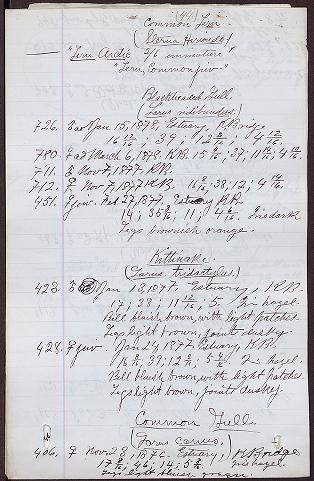 (44)
Common Tern
(Sterna Hirundo)
"Tern Arctic 2/6 immature"
"Tern, Common juv"
Blackheaded Gull.
(Larus ridibundus.)
726. ad Jan 15, 1878, Estuary, R. Bridge
16 2/16; 39; 12; 4 12/16
780. F ad March 6, 1878 K.R. 15 6/16; 37; 11 4/16
711. Nov 7, 1877 K.R.
712. F Nov 7, 1877 K.R. 16; 38; 12; 4 14/16
451. F juv. 27, 1877. Estuary K.R.
14; 36 6/16; 11; 4 Iris dark
Legs brownish orange.
Kittiwake.
(Larus tridactylus.)
423. Jan 13, 1877 Estuary, K.R.
17; 38; 11 12/16; 5. I- hazel.
Bill bluish brown, with light patches.
Legs light brown, joints dusky.
428. F juv. Jan 24, 1877 Estuary, K.R.
16 6/16; 39; 12; 5 4/16 I- hazel.
Bill bluish brown, with light patches.
Legs light brown, joints dusky
Common Gull.
(Larus canus.)
406. F Nov 23, 1876. Estuary, R Bridge
17; 46; 14; 5 iris hazel.
Legs light bluish green